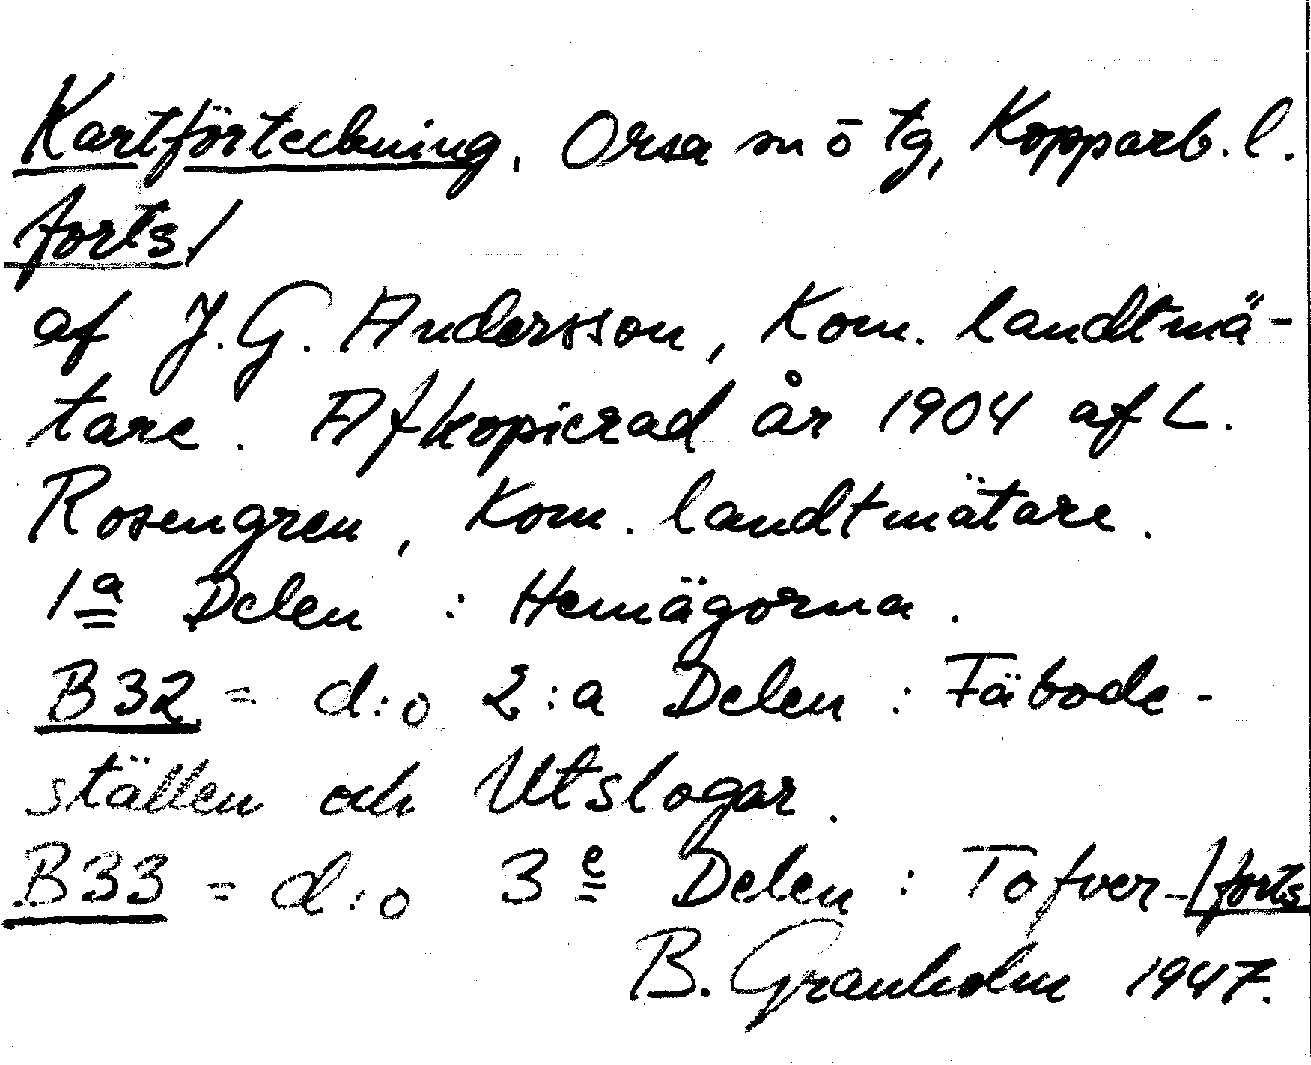 Kartförteckning. Orsa sn ō tg, Kopparb. l.
forts./
af J. G. Andersson, Kom. landtmä-
tare. Afkopierad år 1904 af L.
Rosengren, Kom. landtmätare.
1a Delen : Hemägorna.
B32 = d:o 2:a Delen : Fäbode-
ställen och Utslogar.
B33 = d:o 3e Delen : Tofver-/forts
B. Granholm 1947.